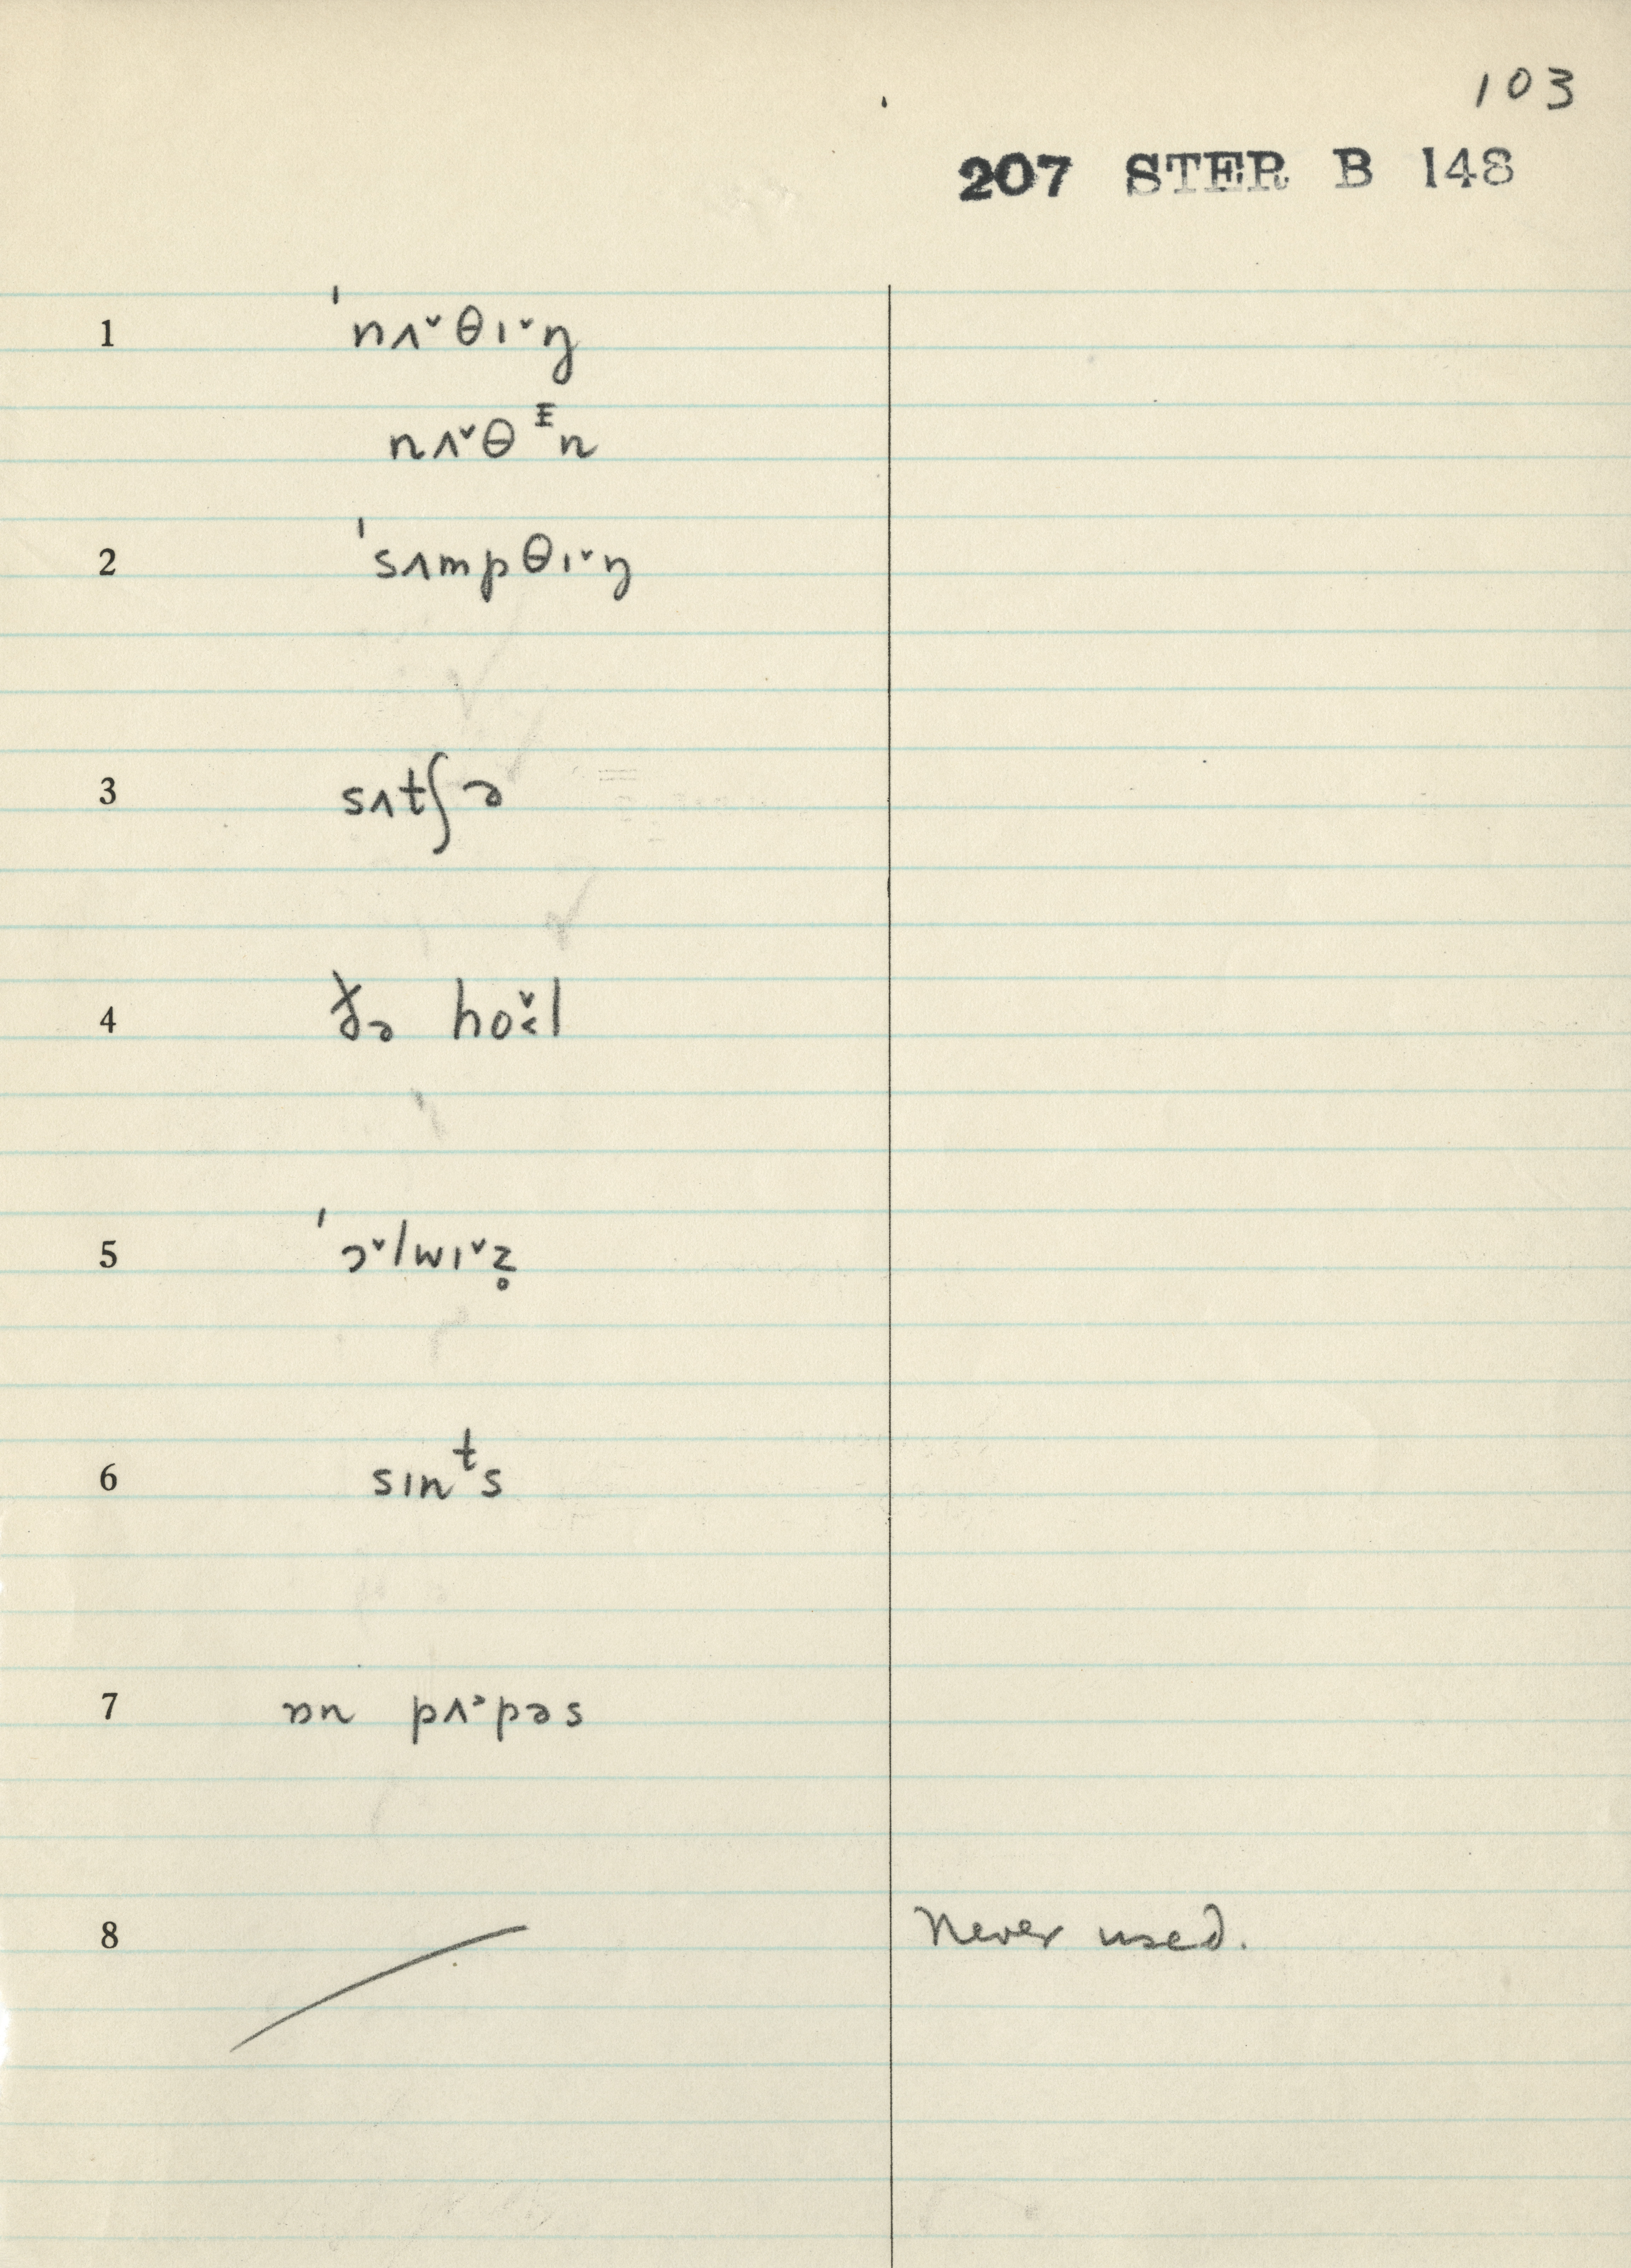 103
207 STER B 148
1 ˈnʌ˅θɪ˅ŋ
nʌ˅θᵻn
2 ˈsʌmpθɪ˅ŋ
3 sʌtʃə
4 ðə ho˅l
5 ˈɔ˅lwɪ˅z̥
6 sɪnᵗs
7 ɒn pʌᵊpəs
8 Never used.